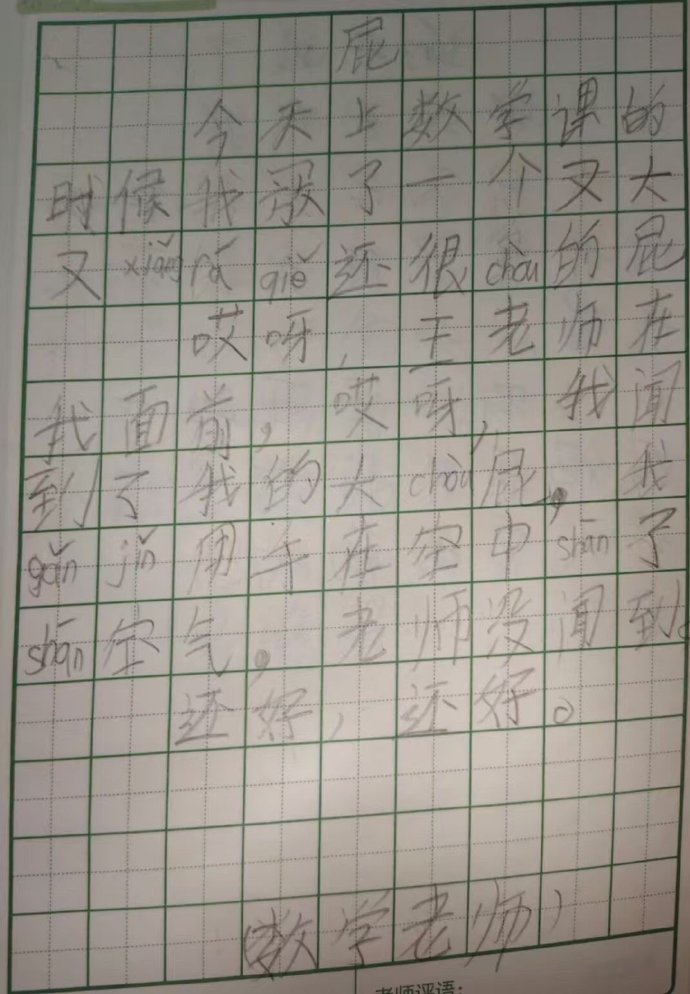 屁
今天上数学课的
时候我放了一个又大
又xiǎng ér qiě还很chòu的屁
哎呀,王老师在
我面前,哎呀,我闻
到了我的大chòu屁,我
gǎn jǐn用手在空中shān了
shān空气,老师没闻到。
还好,还好。
(数学老师)
老师评语: